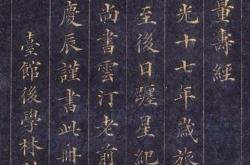 量壽經
光十七年歲旅
至後日躔星紀
尚書雲汀老前
慶辰謹書此冊
臺館後學林